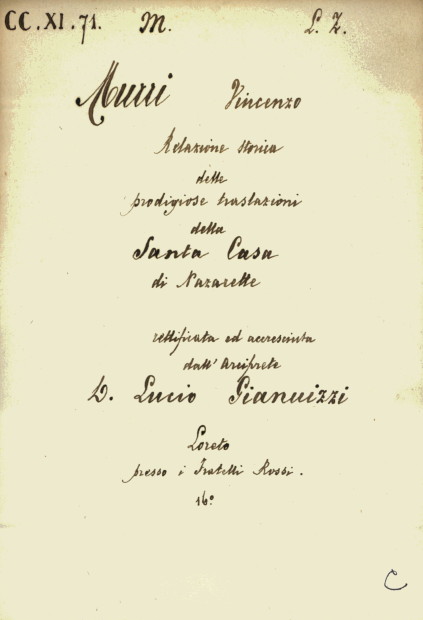 CC.XI.71. M. L. Z.
Murri Vincenzo
Relazione storica
delle
prodigiose traslazioni
della
Santa Casa
di Nazarette
rettificata ed accresciuta
dall' Arciprete
D. Lucio Gianuizzi
Loreto
presso i Fratelli Rossi.
16º
C